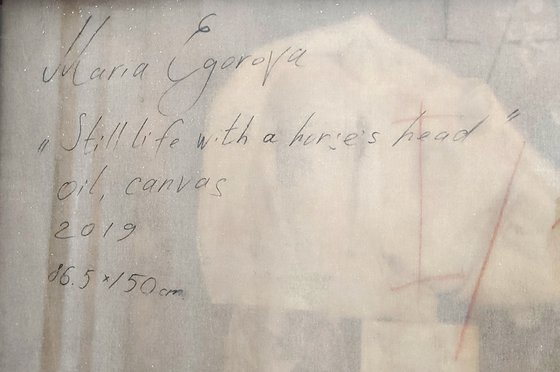 Maria Egorova
„Still life with a horse's head"
oil, canvas
2019
86.5 × 150 cm